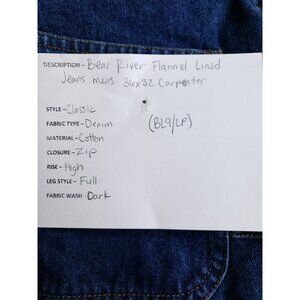 DESCRIPTION- Bear River Flannel Lined
Jeans mens 36x32 Carpenter
STYLE- Classic
FABRIC TYPE- Denim (BL9/LP)
MATERIAL- Cotton
CLOSURE- Zip
RISE- High
LEG STYLE- Full
FABRIC WASH- Dark